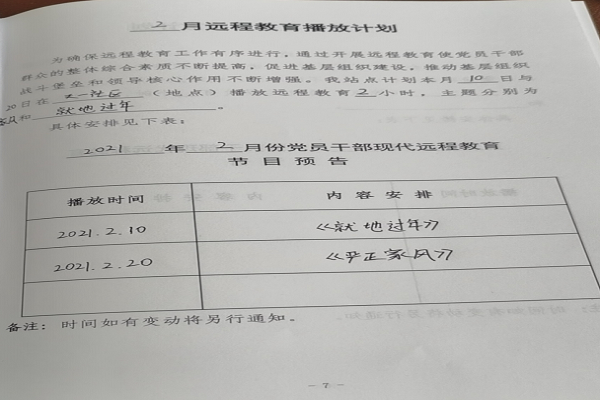 2 月远程教育播放计划
为确保远程教育工作有序进行，通过开展远程教育使党员干部
群众的整体综合素质不断提高，促进基层组织建设，推动基层组织
战斗堡垒和领导核心作用不断增强。我站点计划本月 10 日与
20 日在（地点）播放远程教育 2 小时。主题分别为
和 就地过年 。
具体安排见下表：
2021 年 2 月份党员干部现代远程教育
节目预告
播放时间 内容安排
2021.2.10 《就地过年》
2021.2.20 《严正家风》
备注：时间如有变动将另行通知。
- 7 -